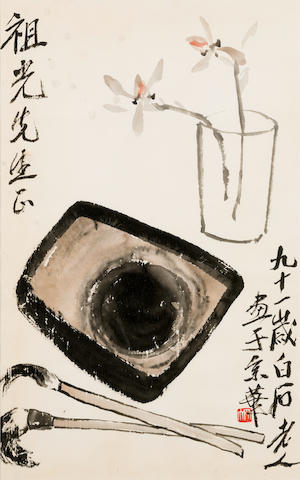 祖光先生正
九十一歲白石老人
畫于京華